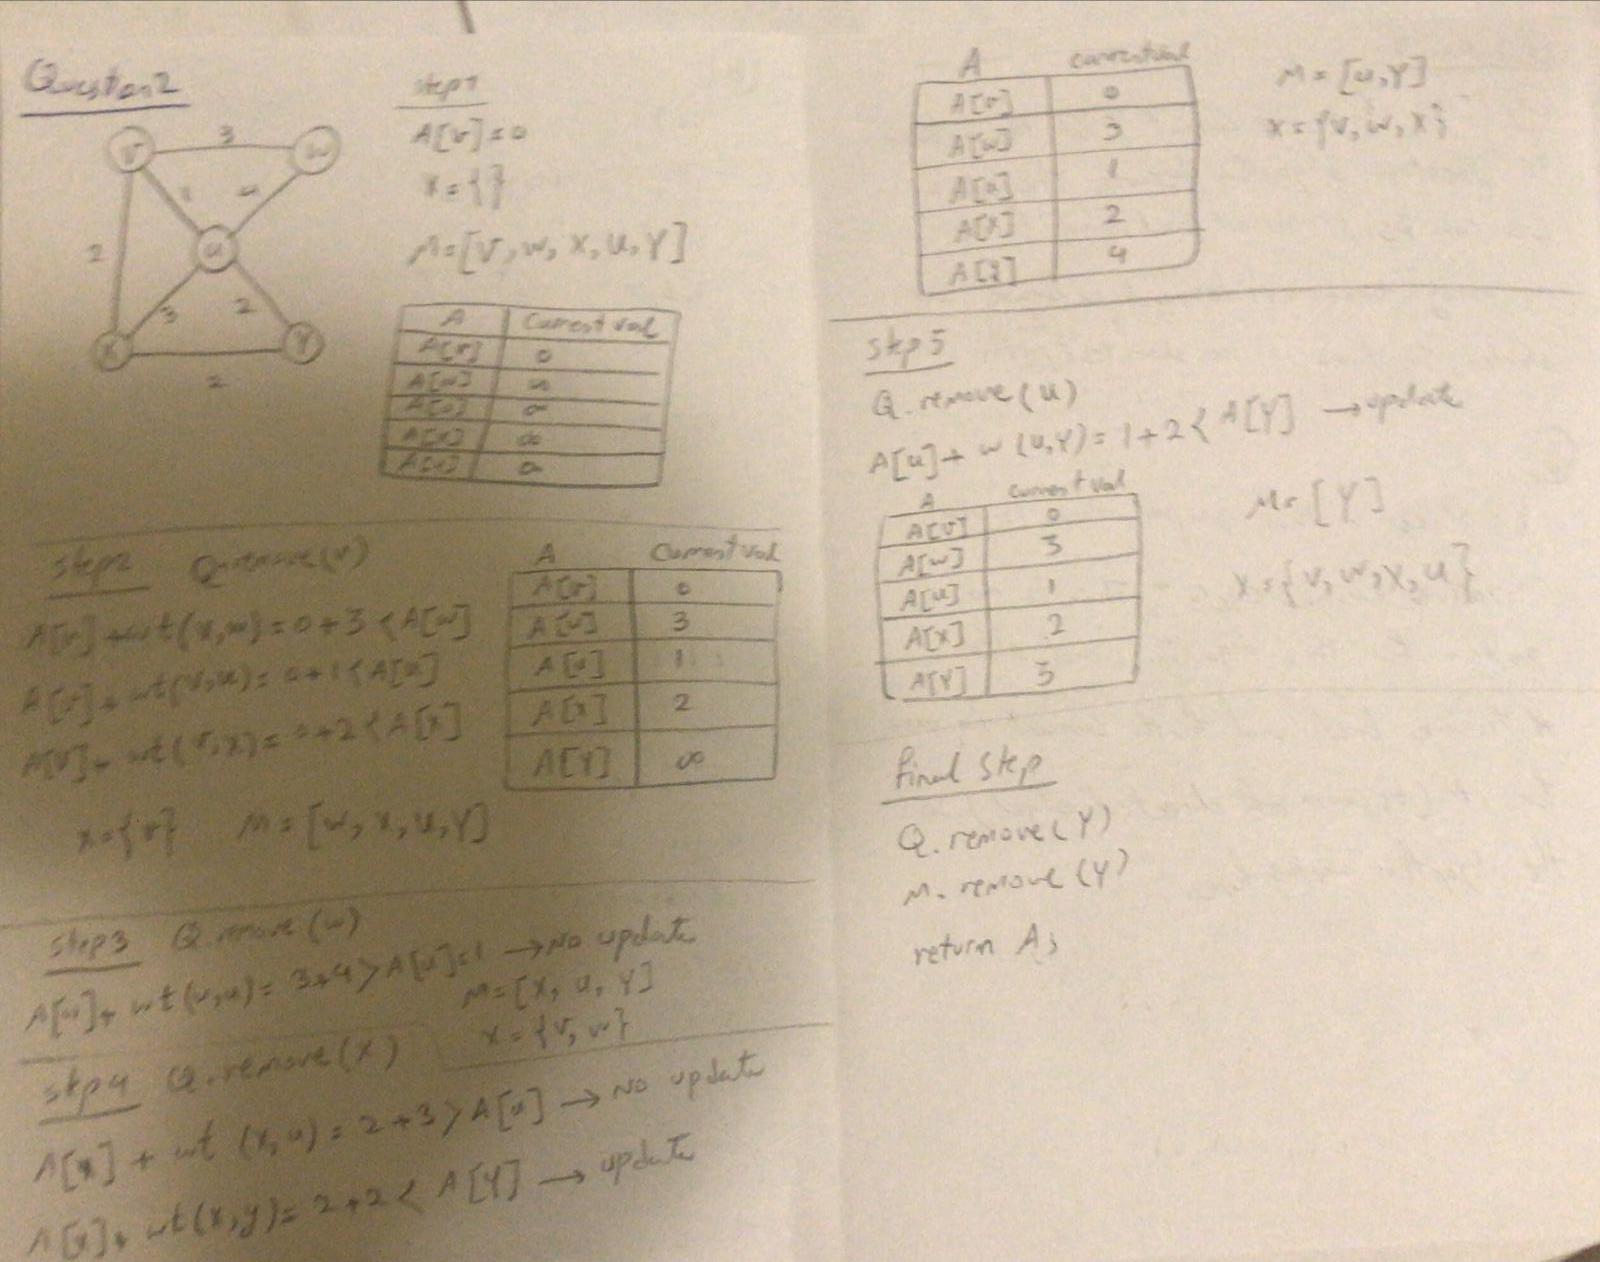 Question 2
V 3 W
1 4
2 u
3 2
X Y
2
step1
A[v]=0
X={}
M=[V,w,X,u,Y]
A current val
A[v] 0
A[w] ∞
A[u] ∞
A[x] ∞
∞
step2 Q.remove(v)
A[v]+wt(v,w)=0+3<A[w]
A[v]+wt(v,u)=0+1<A[u]
A[v]+wt(v,x)=0+2<A[x]
X={v} M=[w,x,u,Y]
A current val
A[v] 0
3
A[u] 1
A[x] 2
A[Y] ∞
step3 Q.remove(w)
A[w]+wt(w,u)=3+4>A[u]=1 → No update
M=[X,u,Y]
X={v,w}
step4 Q.remove(X)
A[x]+wt(x,u)=2+3>A[u] → No update
A[x]+wt(x,y)=2+2<A[Y] → update
A current val
A[v] 0
A[w] 3
A[u] 1
A[X] 2
A[Y] 4
M=[u,Y]
X={v,w,x}
step 5
Q.remove(u)
A[u]+w(u,Y)=1+2<A[Y] → update
A current val
A[v] 0
A[w] 3
A[u] 1
A[x] 2
A[Y] 3
M=[Y]
X={v,w,x,u}
final step
Q.remove(Y)
M.remove(Y)
return A;